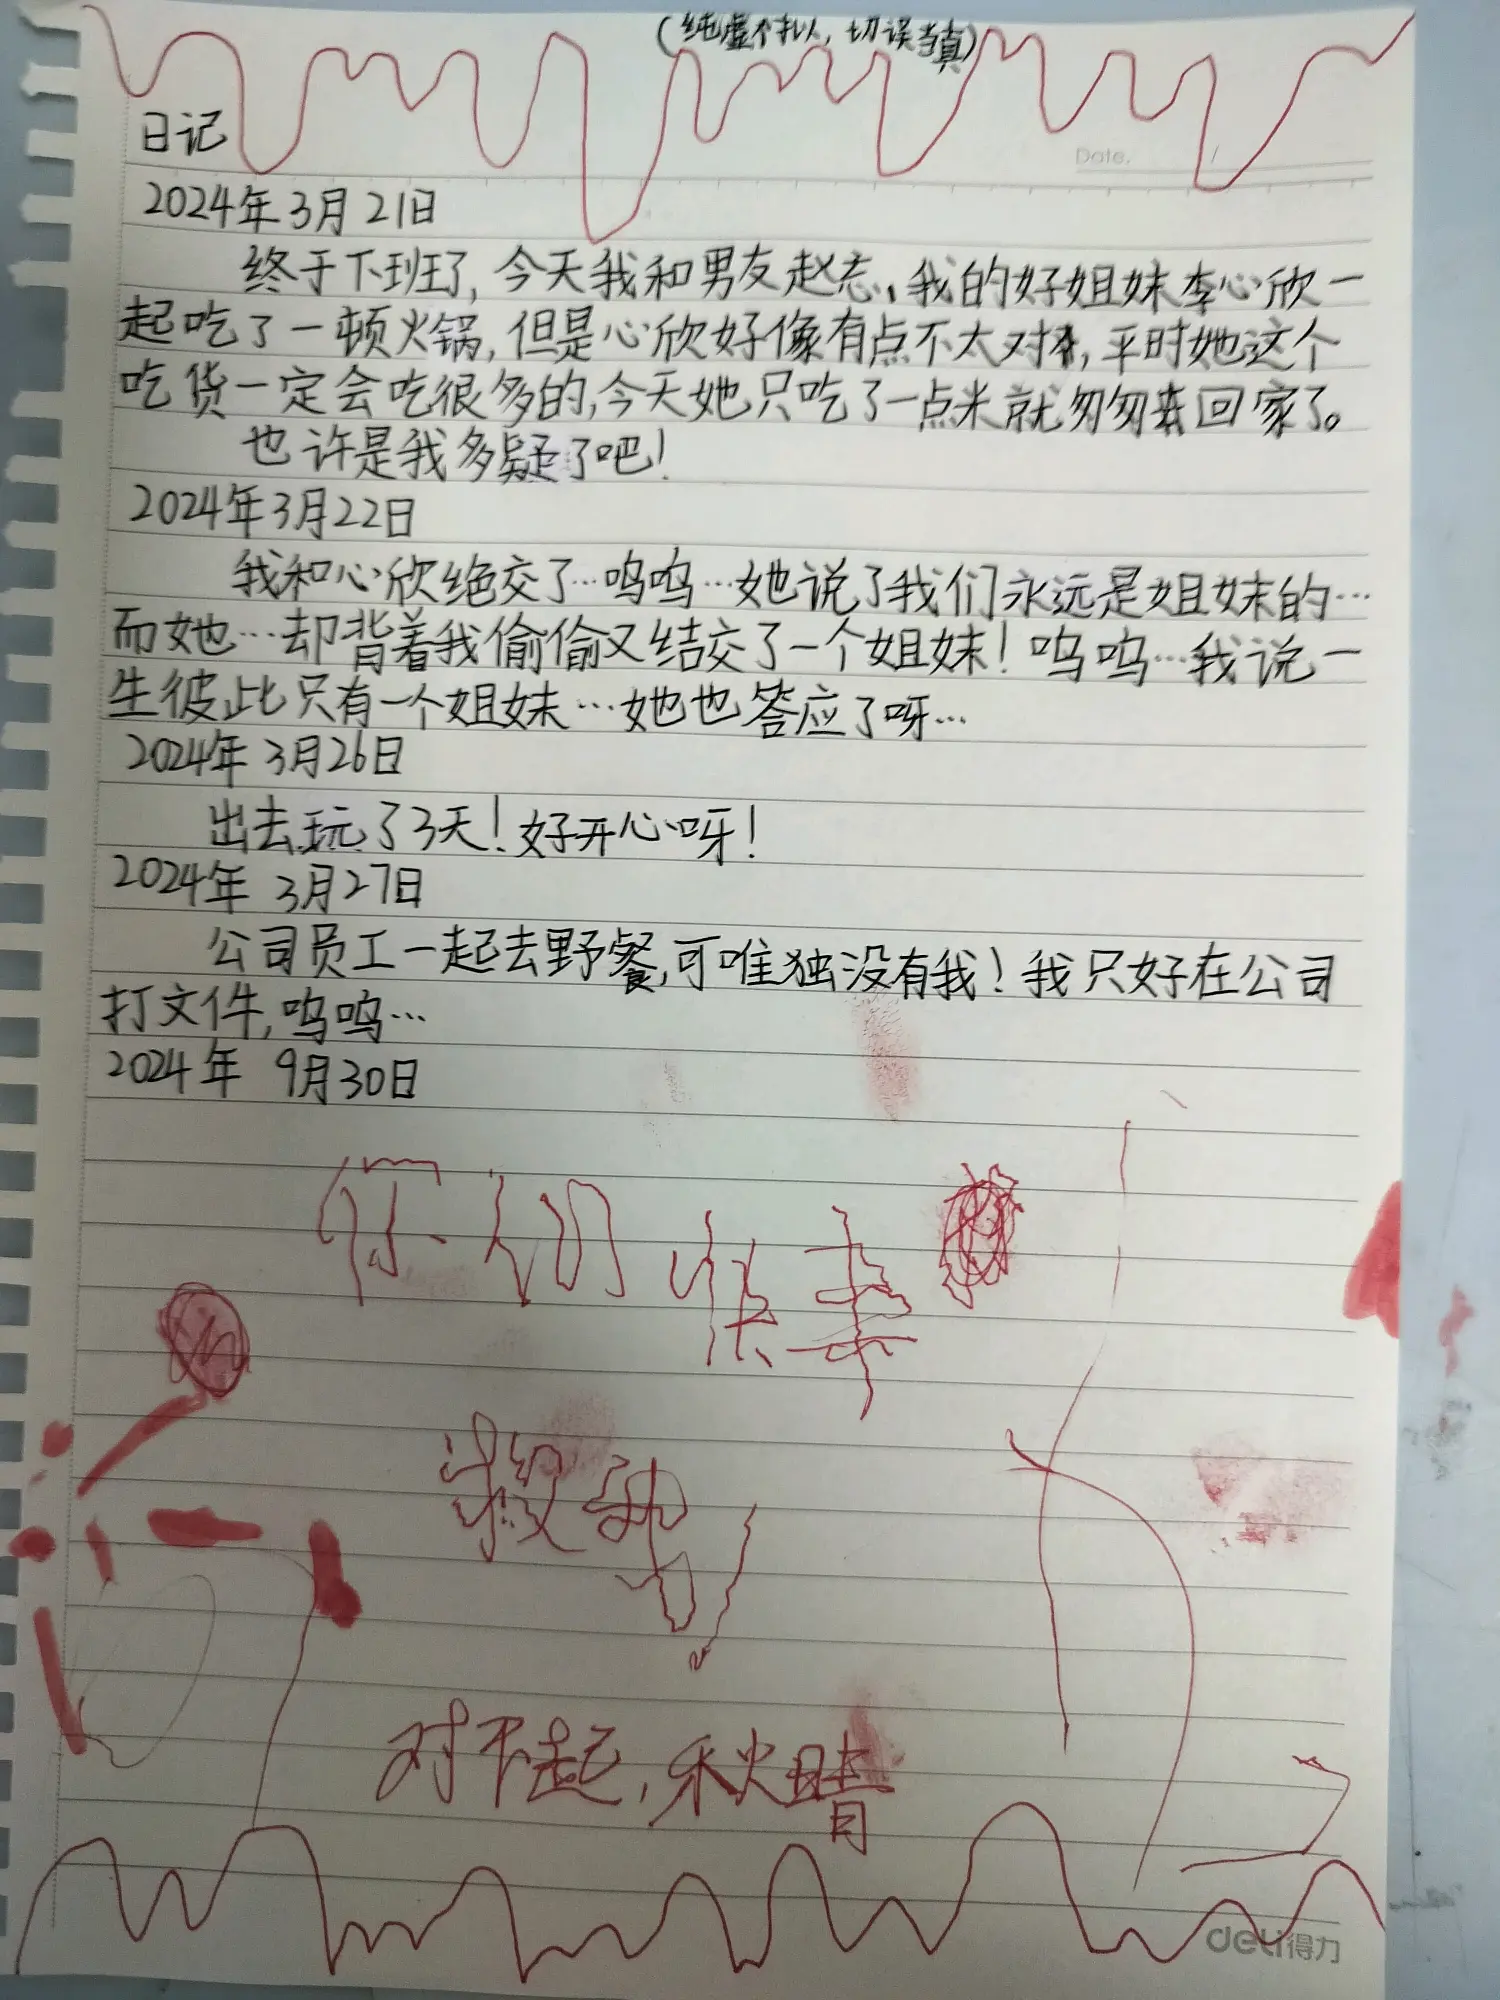 (纯虚拟，切误当真)
日记
Date.
2024年3月21日
终于下班了，今天我和男友赵志、我的好姐妹李心欣一
起吃了一顿火锅，但是心欣好像有点不太对，平时她这个
吃货一定会吃很多的，今天她只吃了一点米就匆匆回家了。
也许是我多疑了吧！
2024年3月22日
我和心欣绝交了…呜呜…她说了我们永远是姐妹的…
而她…却背着我偷偷又结交了一个姐妹！呜呜…我说一
生彼此只有一个姐妹…她也答应了呀…
2024年3月26日
出去玩了3天！好开心呀！
2024年3月27日
公司员工一起去野餐，可唯独没有我！我只好在公司
打文件，呜呜…
2024年 9月30日
你们快
救命
对不起，秋晴
deli得力